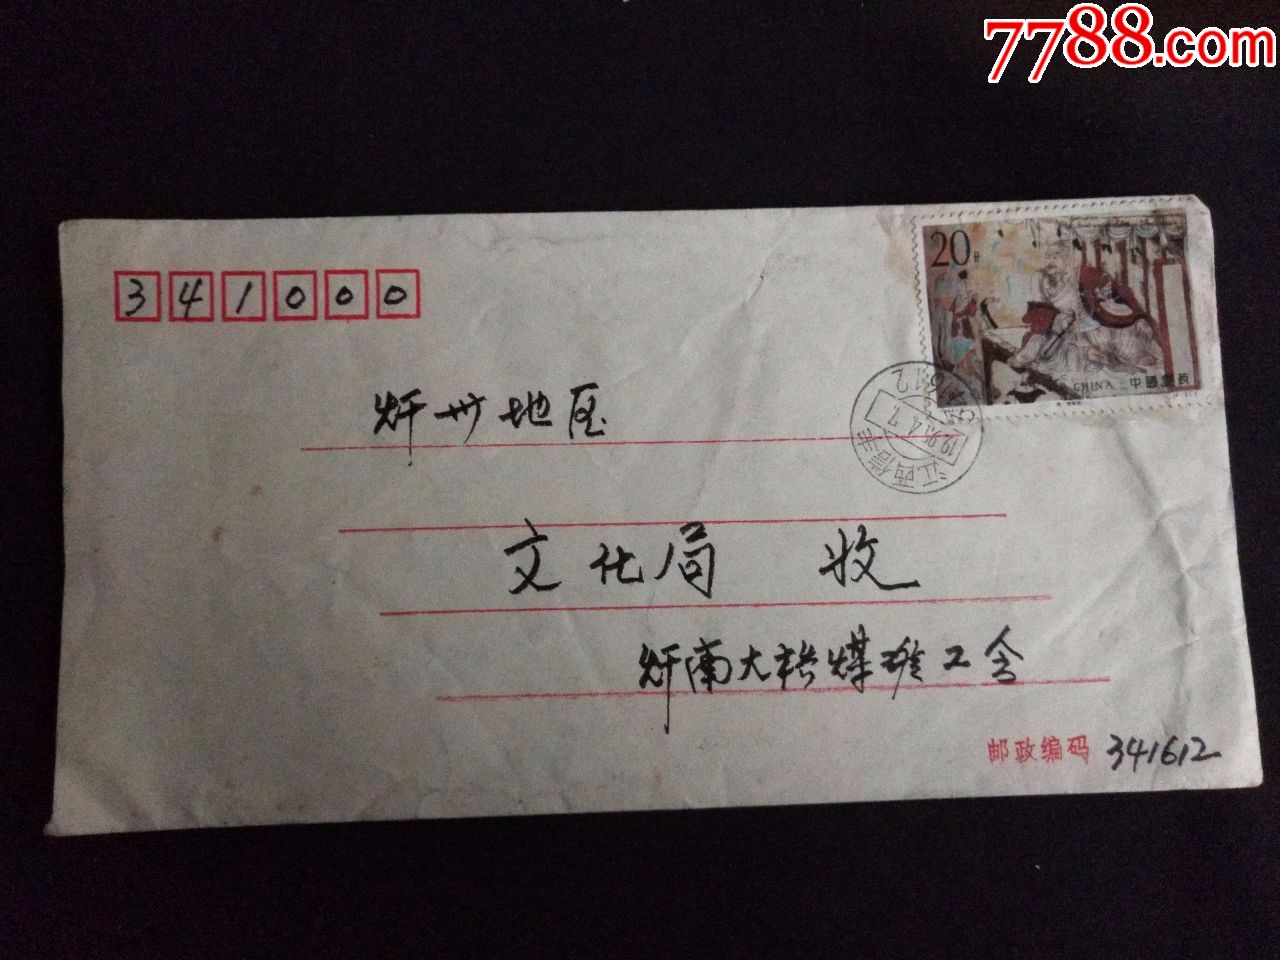 7788.com
20分
CHINA 中國郵政
341000
江西信丰
1995.4.7
赣州地区
文化局 收
赣南大桥煤矿工会
邮政编码 341612